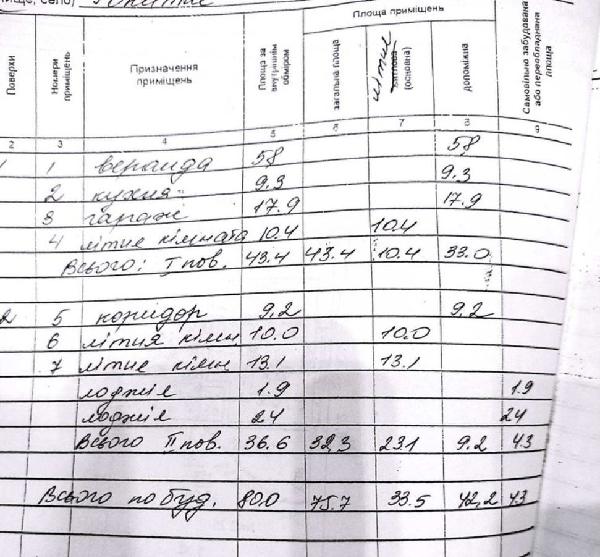 Площа приміщень
Поверхи
Номери приміщень
Призначення приміщень
Площа за внутрішнім обміром
загальна площа
літние
(основна)
допоміжна
Самовільно забудована або переобладнана площа
2 3 4 5 6 7 8 9
1 1 веранда 5.8 5.8
2 кухня 9.3 9.3
3 гараж 17.9 17.9
4 літне кімната 10.4 10.4
Всього: I пов. 43.4 43.4 10.4 33.0
2 5 коридор 9.2 9.2
6 літня кімн 10.0 10.0
7 літне кімн 13.1 13.1
лоджіє 1.9 1.9
лоджіє 2.4 2.4
Всього II пов. 36.6 32.3 23.1 9.2 4.3
Всього по буд. 80.0 75.7 33.5 42,2 4.3